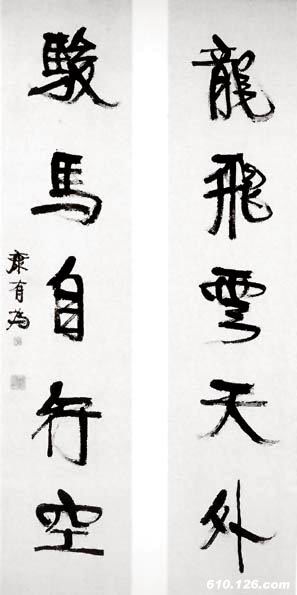 龍飛雲天外
駿馬自行空
康有為
610.126.com